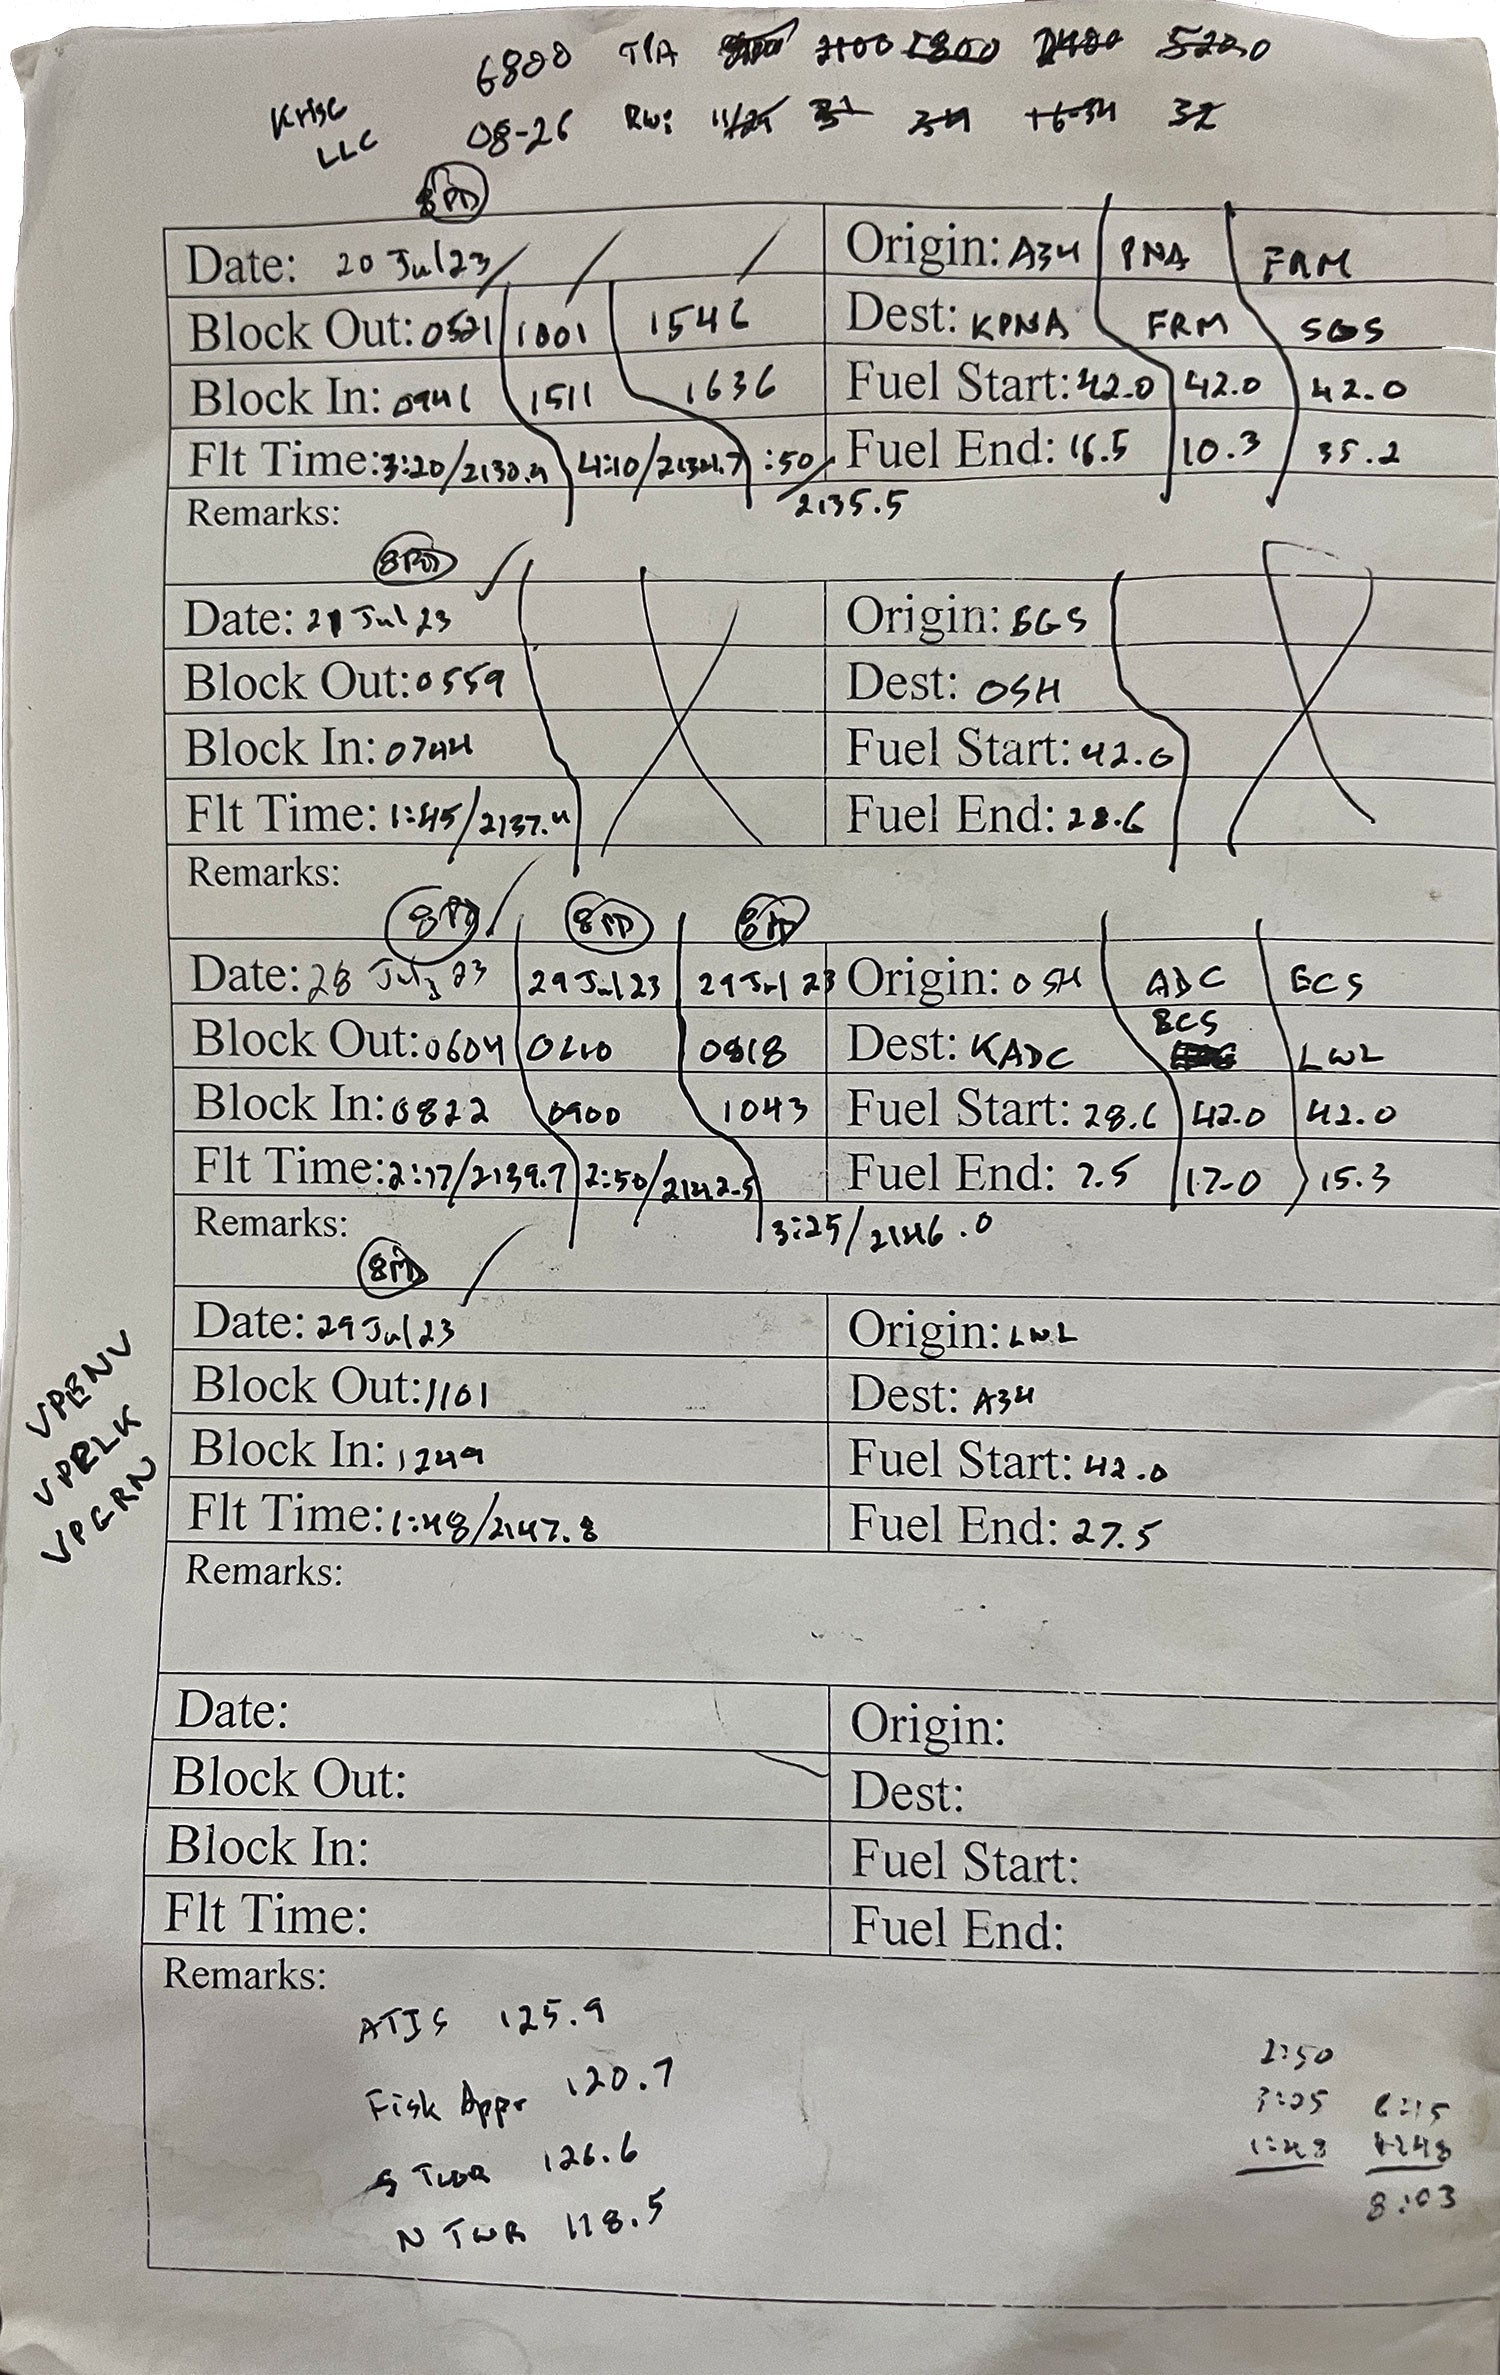 6800 T/A 2100 1800 2400 5200.0
LLC 08-26 RW: 11/29 31 34 16-34 32
8PD
Date: 20 Jul 23 Origin: A34 PNA FRM
Block Out: 0521 1001 1546 Dest: KPNA FRM SGS
Block In: 0941 1511 1636 Fuel Start: 42.0 42.0 42.0
Flt Time: 3:20/2130.4 4:10/2134.7 :50/2135.5 Fuel End: 16.5 10.3 35.2
Remarks:
8PD
Date: 21 Jul 23 Origin: SGS
Block Out: 0559 Dest: OSH
Block In: 0744 Fuel Start: 42.0
Flt Time: 1:45/2137.4 Fuel End: 28.6
Remarks:
8PD 8PD 8PD
Date: 28 Jul 23 29 Jul 23 29 Jul 23 Origin: OSH ADC BCS
Block Out: 0604 0610 0818 Dest: KADC BCS LWL
Block In: 0822 0900 1043 Fuel Start: 28.6 42.0 42.0
Flt Time: 2:17/2139.7 2:50/2142.5 3:25/2146.0 Fuel End: 7.5 17.0 15.3
Remarks:
8PD
Date: 29 Jul 23 Origin: LWL
Block Out: 1101 Dest: A34
Block In: 1249 Fuel Start: 42.0
Flt Time: 1:48/2147.8 Fuel End: 27.5
Remarks:
VPENV
VPBLK
VPGRN
Date: Origin:
Block Out: Dest:
Block In: Fuel Start:
Flt Time: Fuel End:
Remarks:
ATIS 125.9
Fisk Appr 120.7
S TWR 126.6
N TWR 118.5
2:50
3:25 6:15
1:48 1:48
8:03